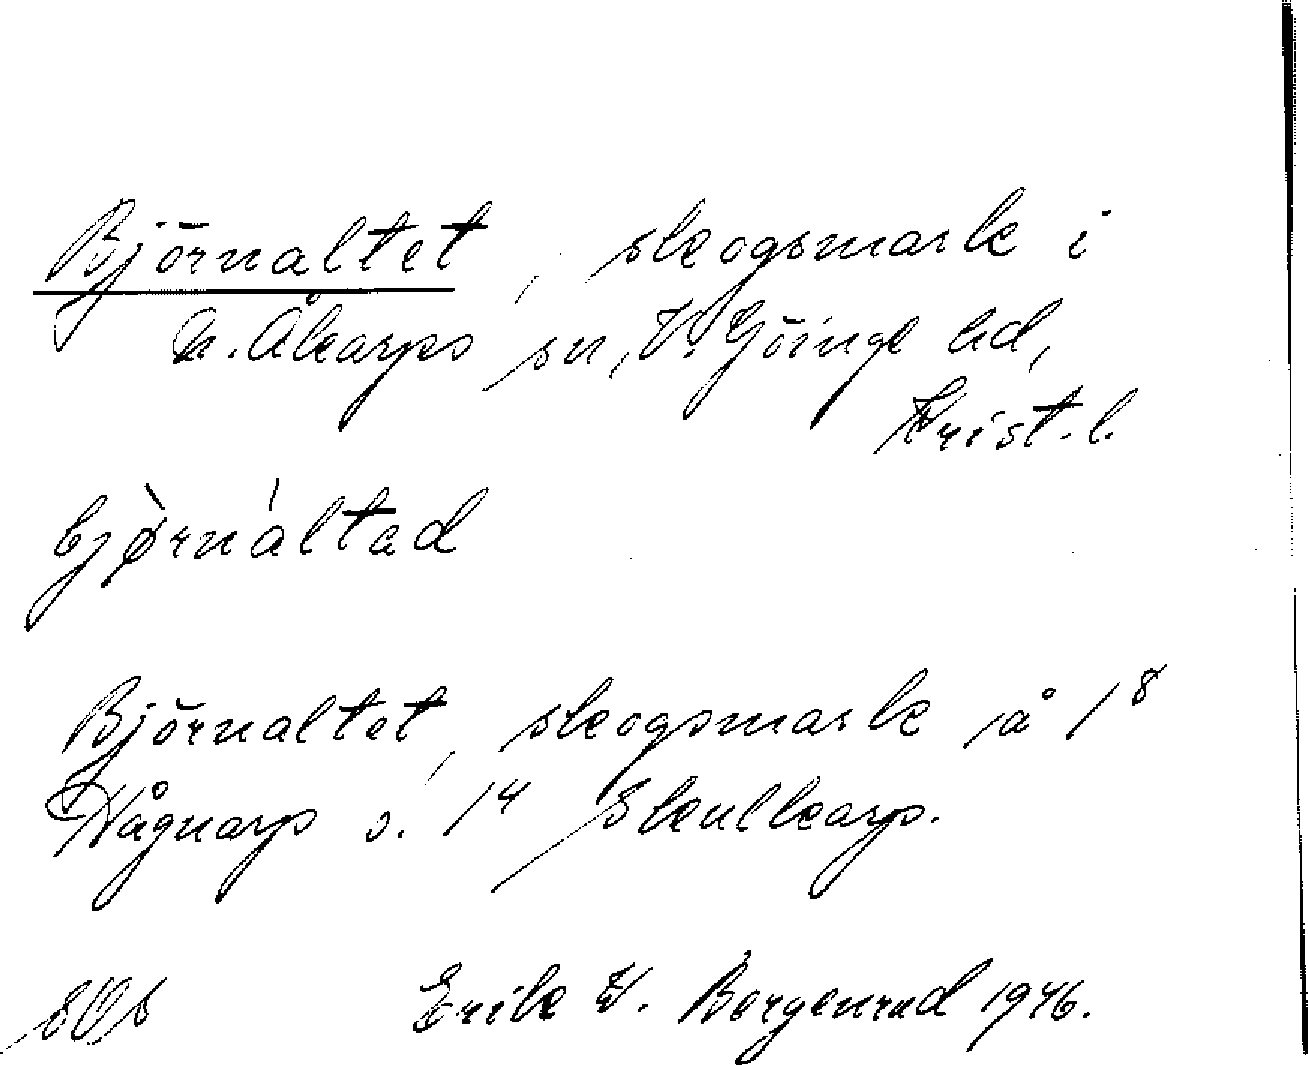 Björnaltet, skogsmark i
N. Åkarps sn, V. Göinge hd,
Krist. l.
bjø̀rnáltad
Björnaltet, skogsmark å 1⁸
Hågnarp o. 1⁴ Skullkarp.
Erik W. Borgenrud 1946.